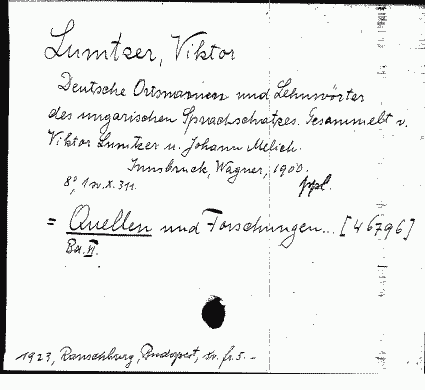 Lumtzer, Viktor
Deutsche Ortsnamen und Lehnwörter
des ungarischen Sprachschatzes. Gesammelt v.
Viktor Lumtzer u. Johann Melich.
Innsbruck, Wagner, 1900.
8°, 1 w. X. 311. ppl.
= Quellen und Forschungen... [46796]
Bd. VI.
1923, Ranschburg, Budapest, fr. 5.-